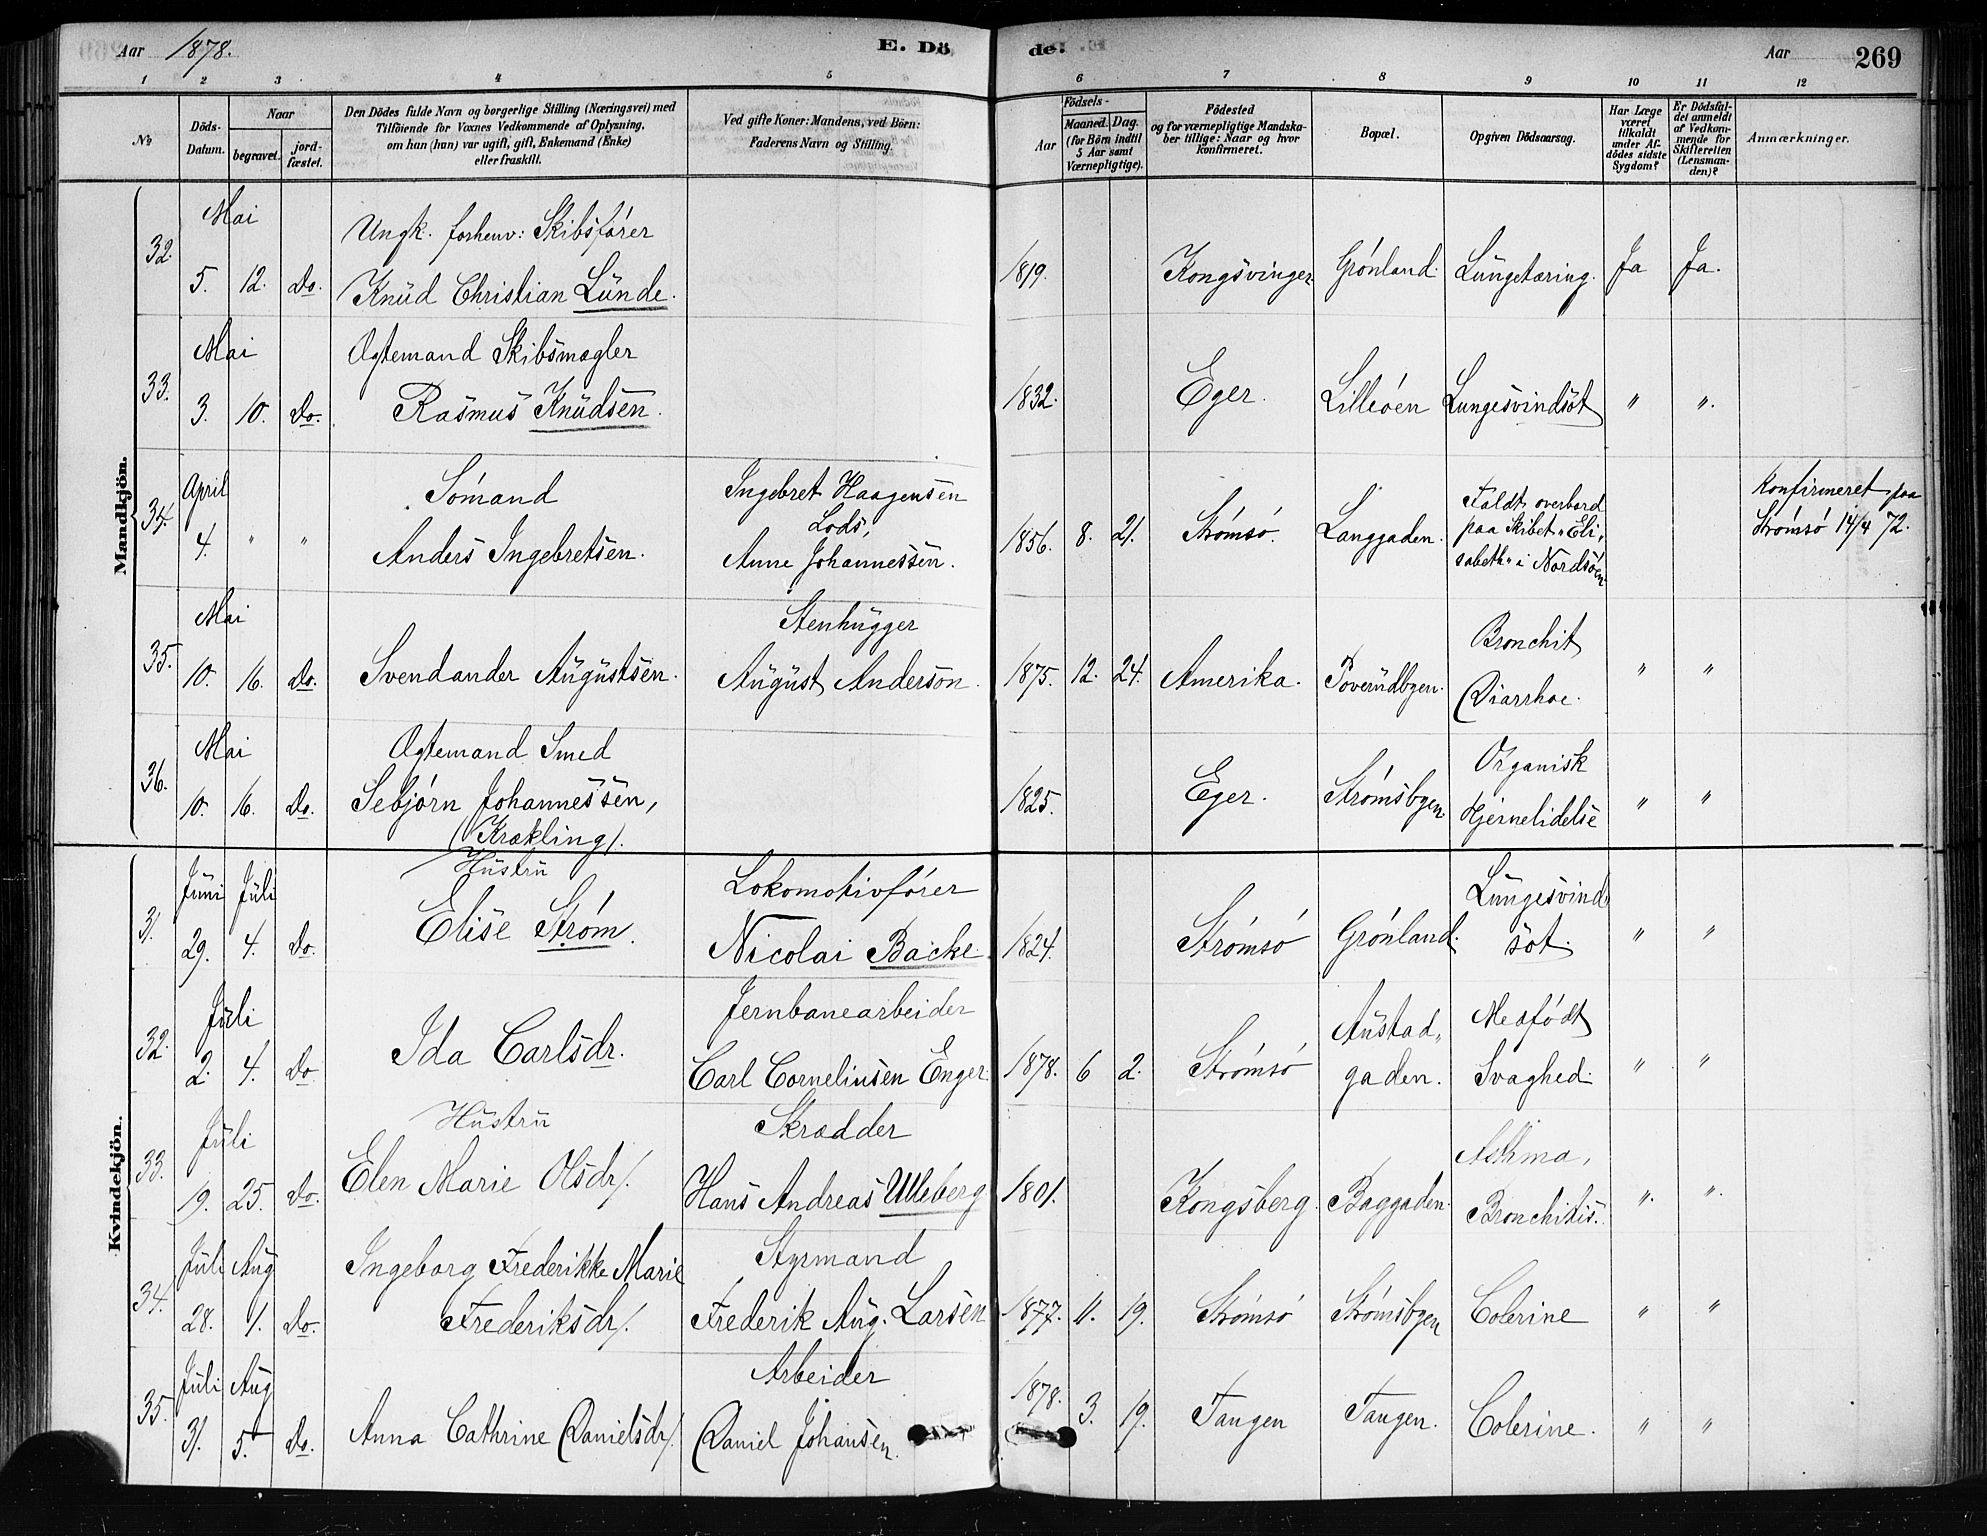 Aar 1878.
E. Dö de.
Aar 269
1 2 3 4 5 6 7 8 9 10 11 12
No
Döds-Datum.
Naar
begravet.
jord-fæstet.
Den Dödes fulde Navn og borgerlige Stilling (Næringsvei) med
Tilföiende for Voxnes Vedkommende af Oplysning,
om han (hun) var ugift, gift, Enkemand (Enke)
eller fraskilt.
Ved gifte Koner: Mandens, ved Börn:
Faderens Navn og Stilling.
Födsels-
Aar
Maaned. Dag.
(for Börn indtil
5 Aar samt
Værnepligtige).
Födested
og for værnepligtige Mandska-
ber tillige: Naar og hvor
konfirmeret.
Bopæl.
Opgiven Dödsaarsag.
Har Læge
været
tilkaldt
under Af-
dödes sidste
Sygdom?
Er Dödsfal-
det anmeldt
af Vedkom-
mende for
Skifteretten
(Lensman-
den)?
Anmærkninger.
Mandkjön.
32. Mai
Ungk. forhenv: Skibsfører
5. 12. Do. Knud Christian Lunde. 1819. Kongsvinger Grønland. Lungetæring. Ja Ja.
33. Mai
Ægtemand Skibsmægler
3. 10. Do. Rasmus Knudsen. 1832. Eger. Lilleøen Lungesvindsot " ".
34. April
Sømand
4. " " Anders Ingebretsen.
Ingebret Haagensen
Lods,
Anne Johannessen.
1856. 8. 21. Strømsø. Langgaden.
Faldt overbord
paa Skibet "Eli-
sabeth" i Nordsøen
Konfirmeret paa
Strømsø 14/4 72.
35. Mai
10. 16. Do. Svendander Augustsen.
Stenhugger
August Anderson.
1875. 12. 24. Amerika. Toverudbyen.
Bronchit
Diarrhoe.
" "
36. Mai
Ægtemand Smed
10. 16. Do. Sebjørn Johannessen,
(Krækling).
1825. Eger. Strømsbyen
Organisk
Hjernelidelse
" "
Kvindekjön.
31. Juni Juli
Hustru
29. 4. Do. Elise Strøm.
Lokomotivfører
Nicolai Backe.
1824. Strømsø Grønland.
Lungesvind
sot.
" "
32. Juli
2. 4. Do Ida Carlsdr.
Jernbanearbeider
Carl Corneliusen Enger.
1878. 6 2. Strømsø
Austad-
gaden.
Medfødt
Svaghed.
" "
33. Juli
Hustru
19. 25. Do. Elen Marie Olsdr.
Skrædder
Hans Andreas Ulleberg
1801. Kongsberg. Baggaden.
Asthma,
Bronchitis.
". ".
34. Juli Aug
Ingeborg Frederikke Marie
28. 1. Do. Frederiksdr.
Styrmand
Frederik Aug. Larsen
1877. 11. 19. Strømsø Strømsbyen Colerine " "
35. Juli Aug
31. 5. Do. Anna Cathrine Danielsdr.
Arbeider
Daniel Johansen.
1878. 3. 19. Tangen Tangen. Colerine. " "